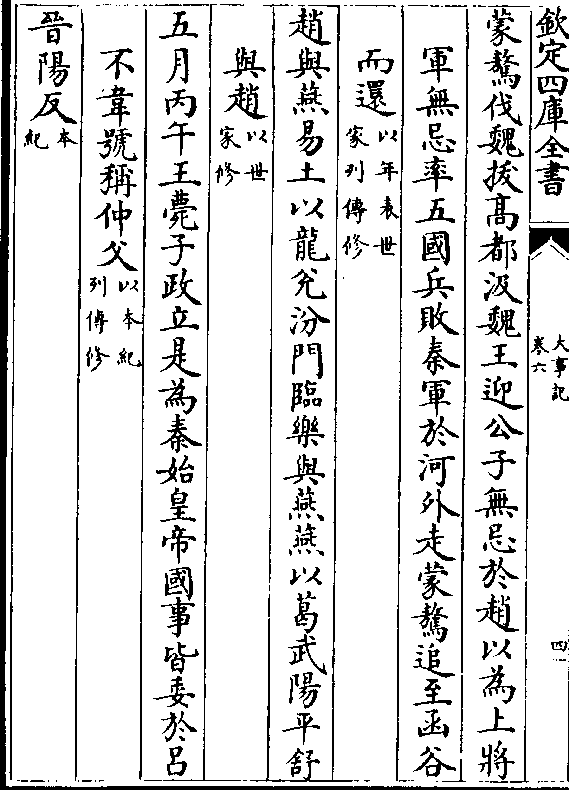 欽定四庫全書
大事記
卷六
四
蒙驁伐魏拔高都汲魏王迎公子無忌於趙以為上將
軍無忌率五國兵敗秦軍於河外走蒙驁追至函谷
而還以年表世家列傳修
趙與燕易土以龍兌汾門臨樂與燕燕以葛武陽平舒
與趙以世家修
五月丙午王薨子政立是為秦始皇帝國事皆委於呂
不韋號稱仲父以本紀列傳修
晉陽反本紀